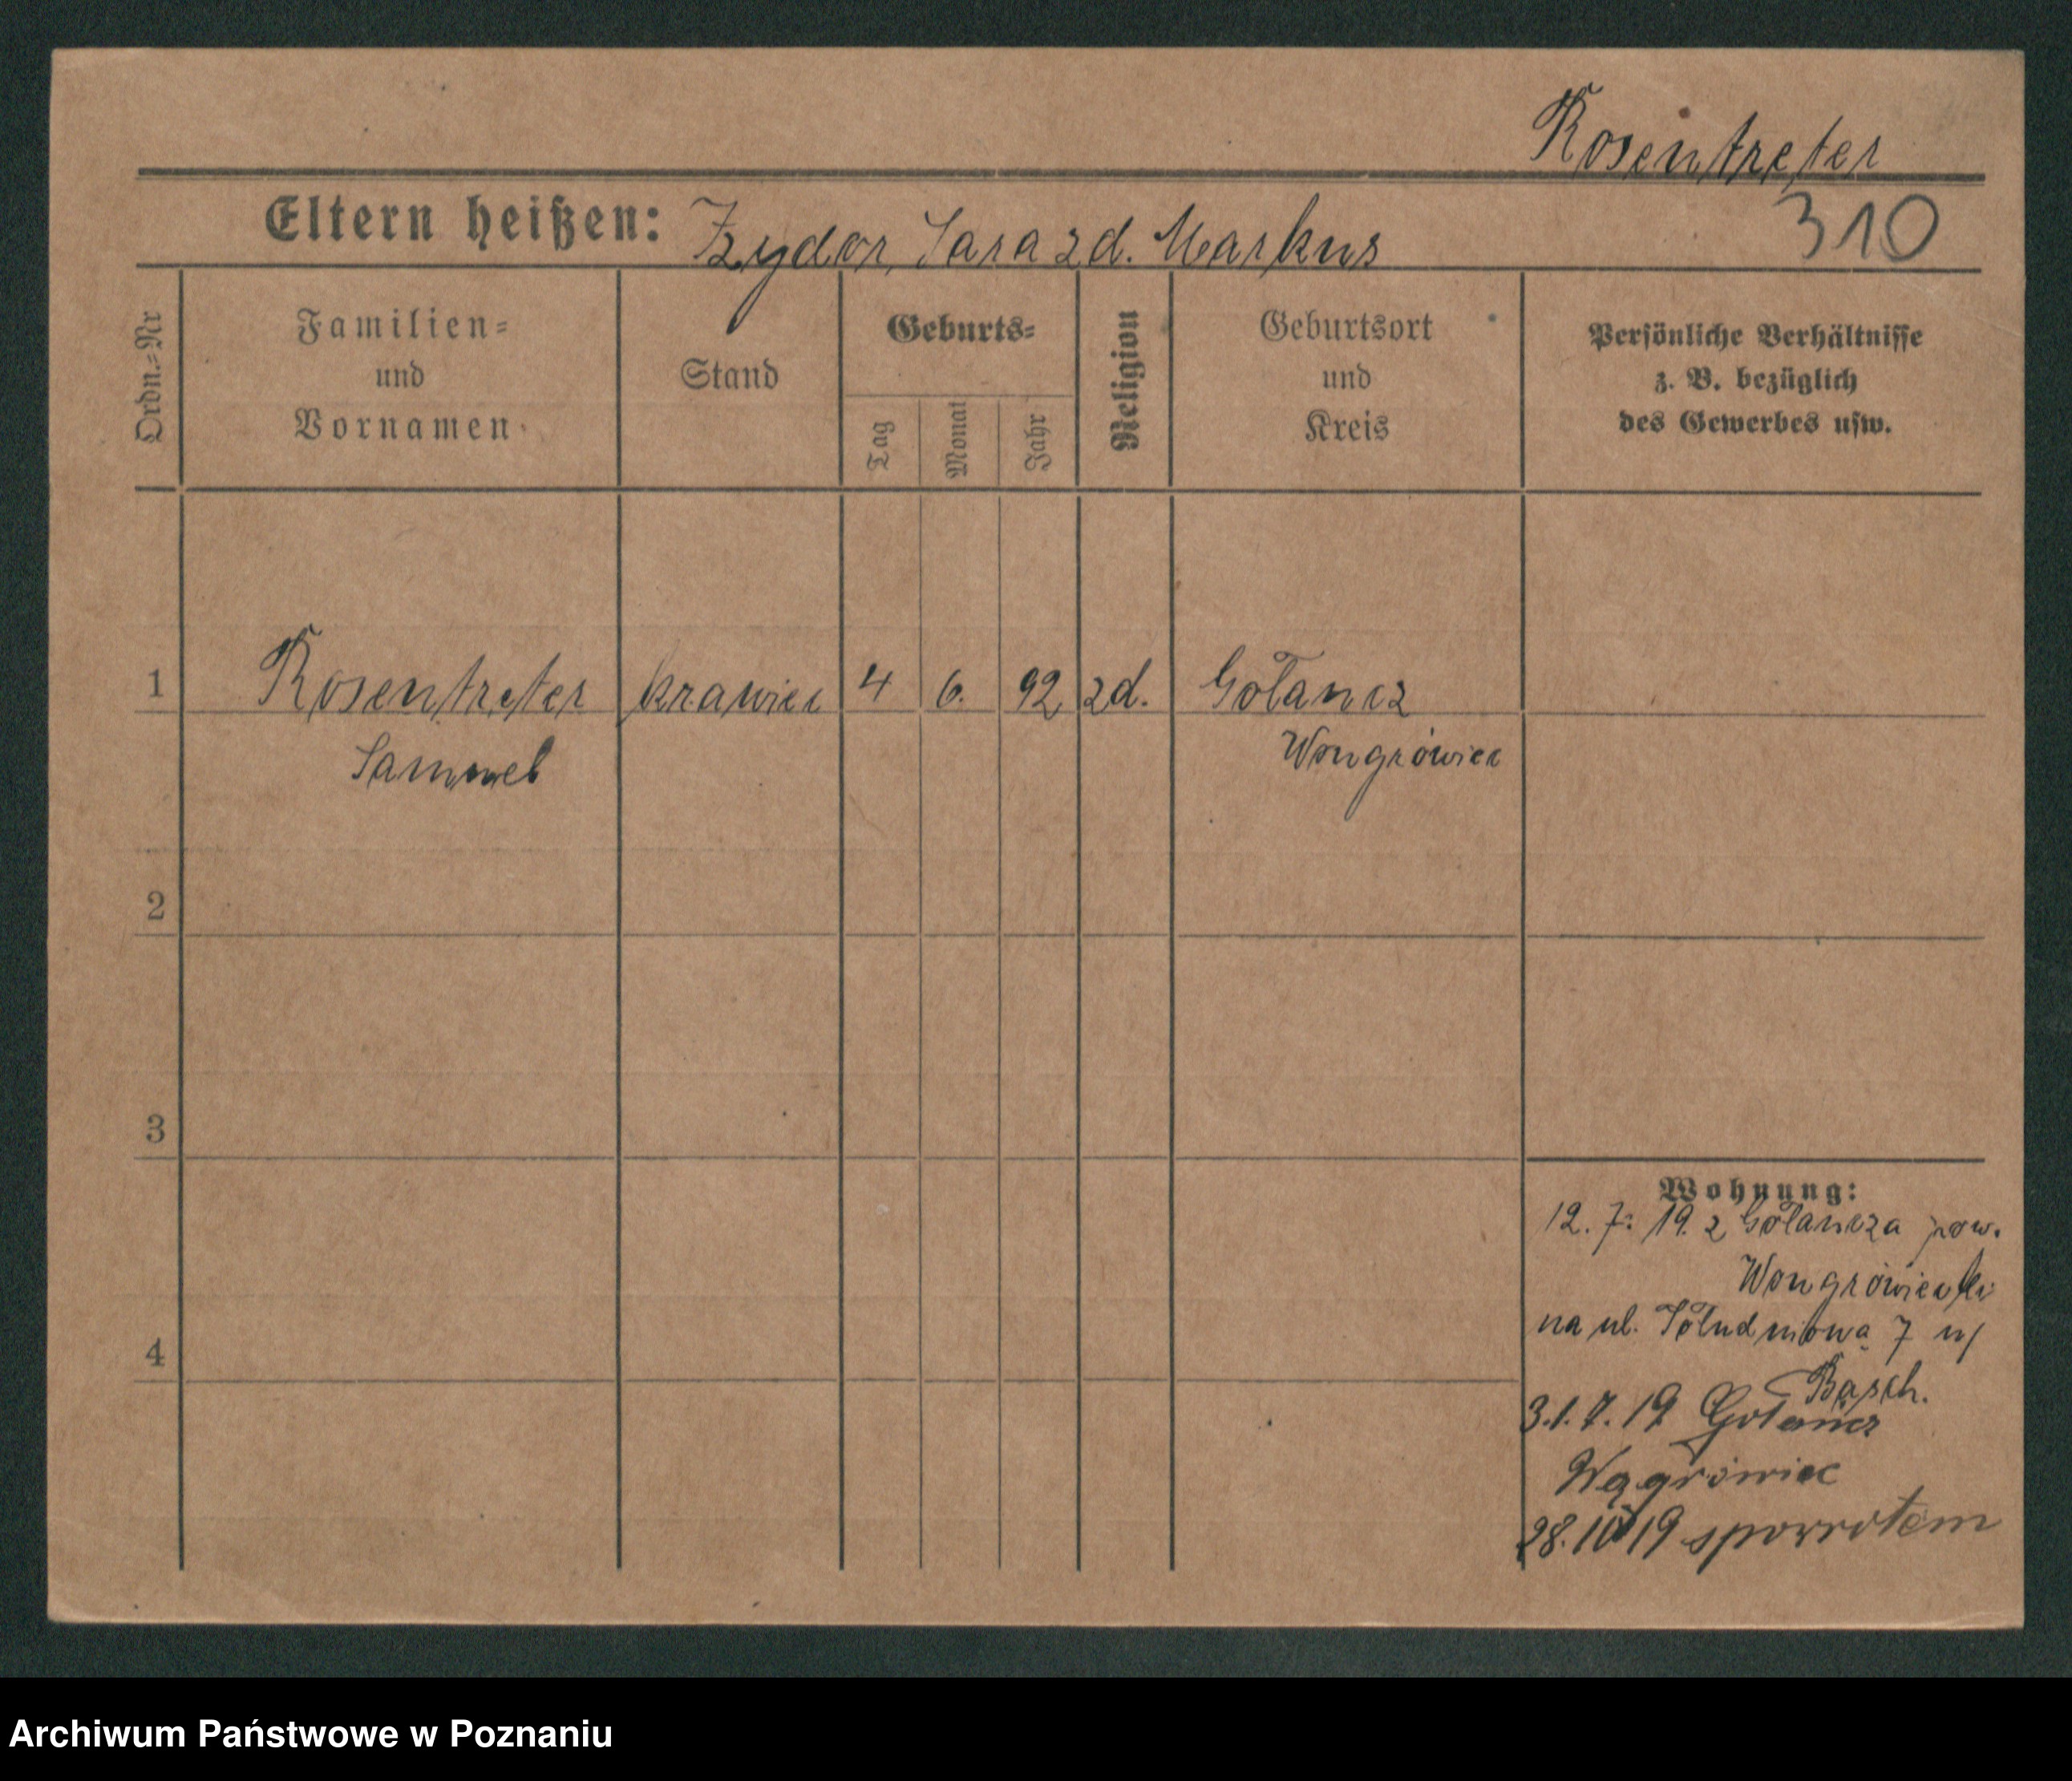 Rosentreter
310
Eltern heißen: Izydor, Sara zd. Markus
Ordn.-Nr
Familien-
und
Vornamen
Stand
Geburts-
Tag
Monat
Jahr
Religion
Geburtsort
und
Kreis
Persönliche Verhältnisse
z. B. bezüglich
des Gewerbes usw.
1 Rosentreter krawiec 4 6. 92 żd. Gołańcz
Samuel Wongrówiec
2
3
4
Wohnung:
12. 7. 19. z Gołańcza pow.
Wongrówiecki
na ul. Południową 7 u/
Basch.
31. 7. 19 Gołańcz
Wągrówiec
28. 10 19 spowrotem
Archiwum Państwowe w Poznaniu